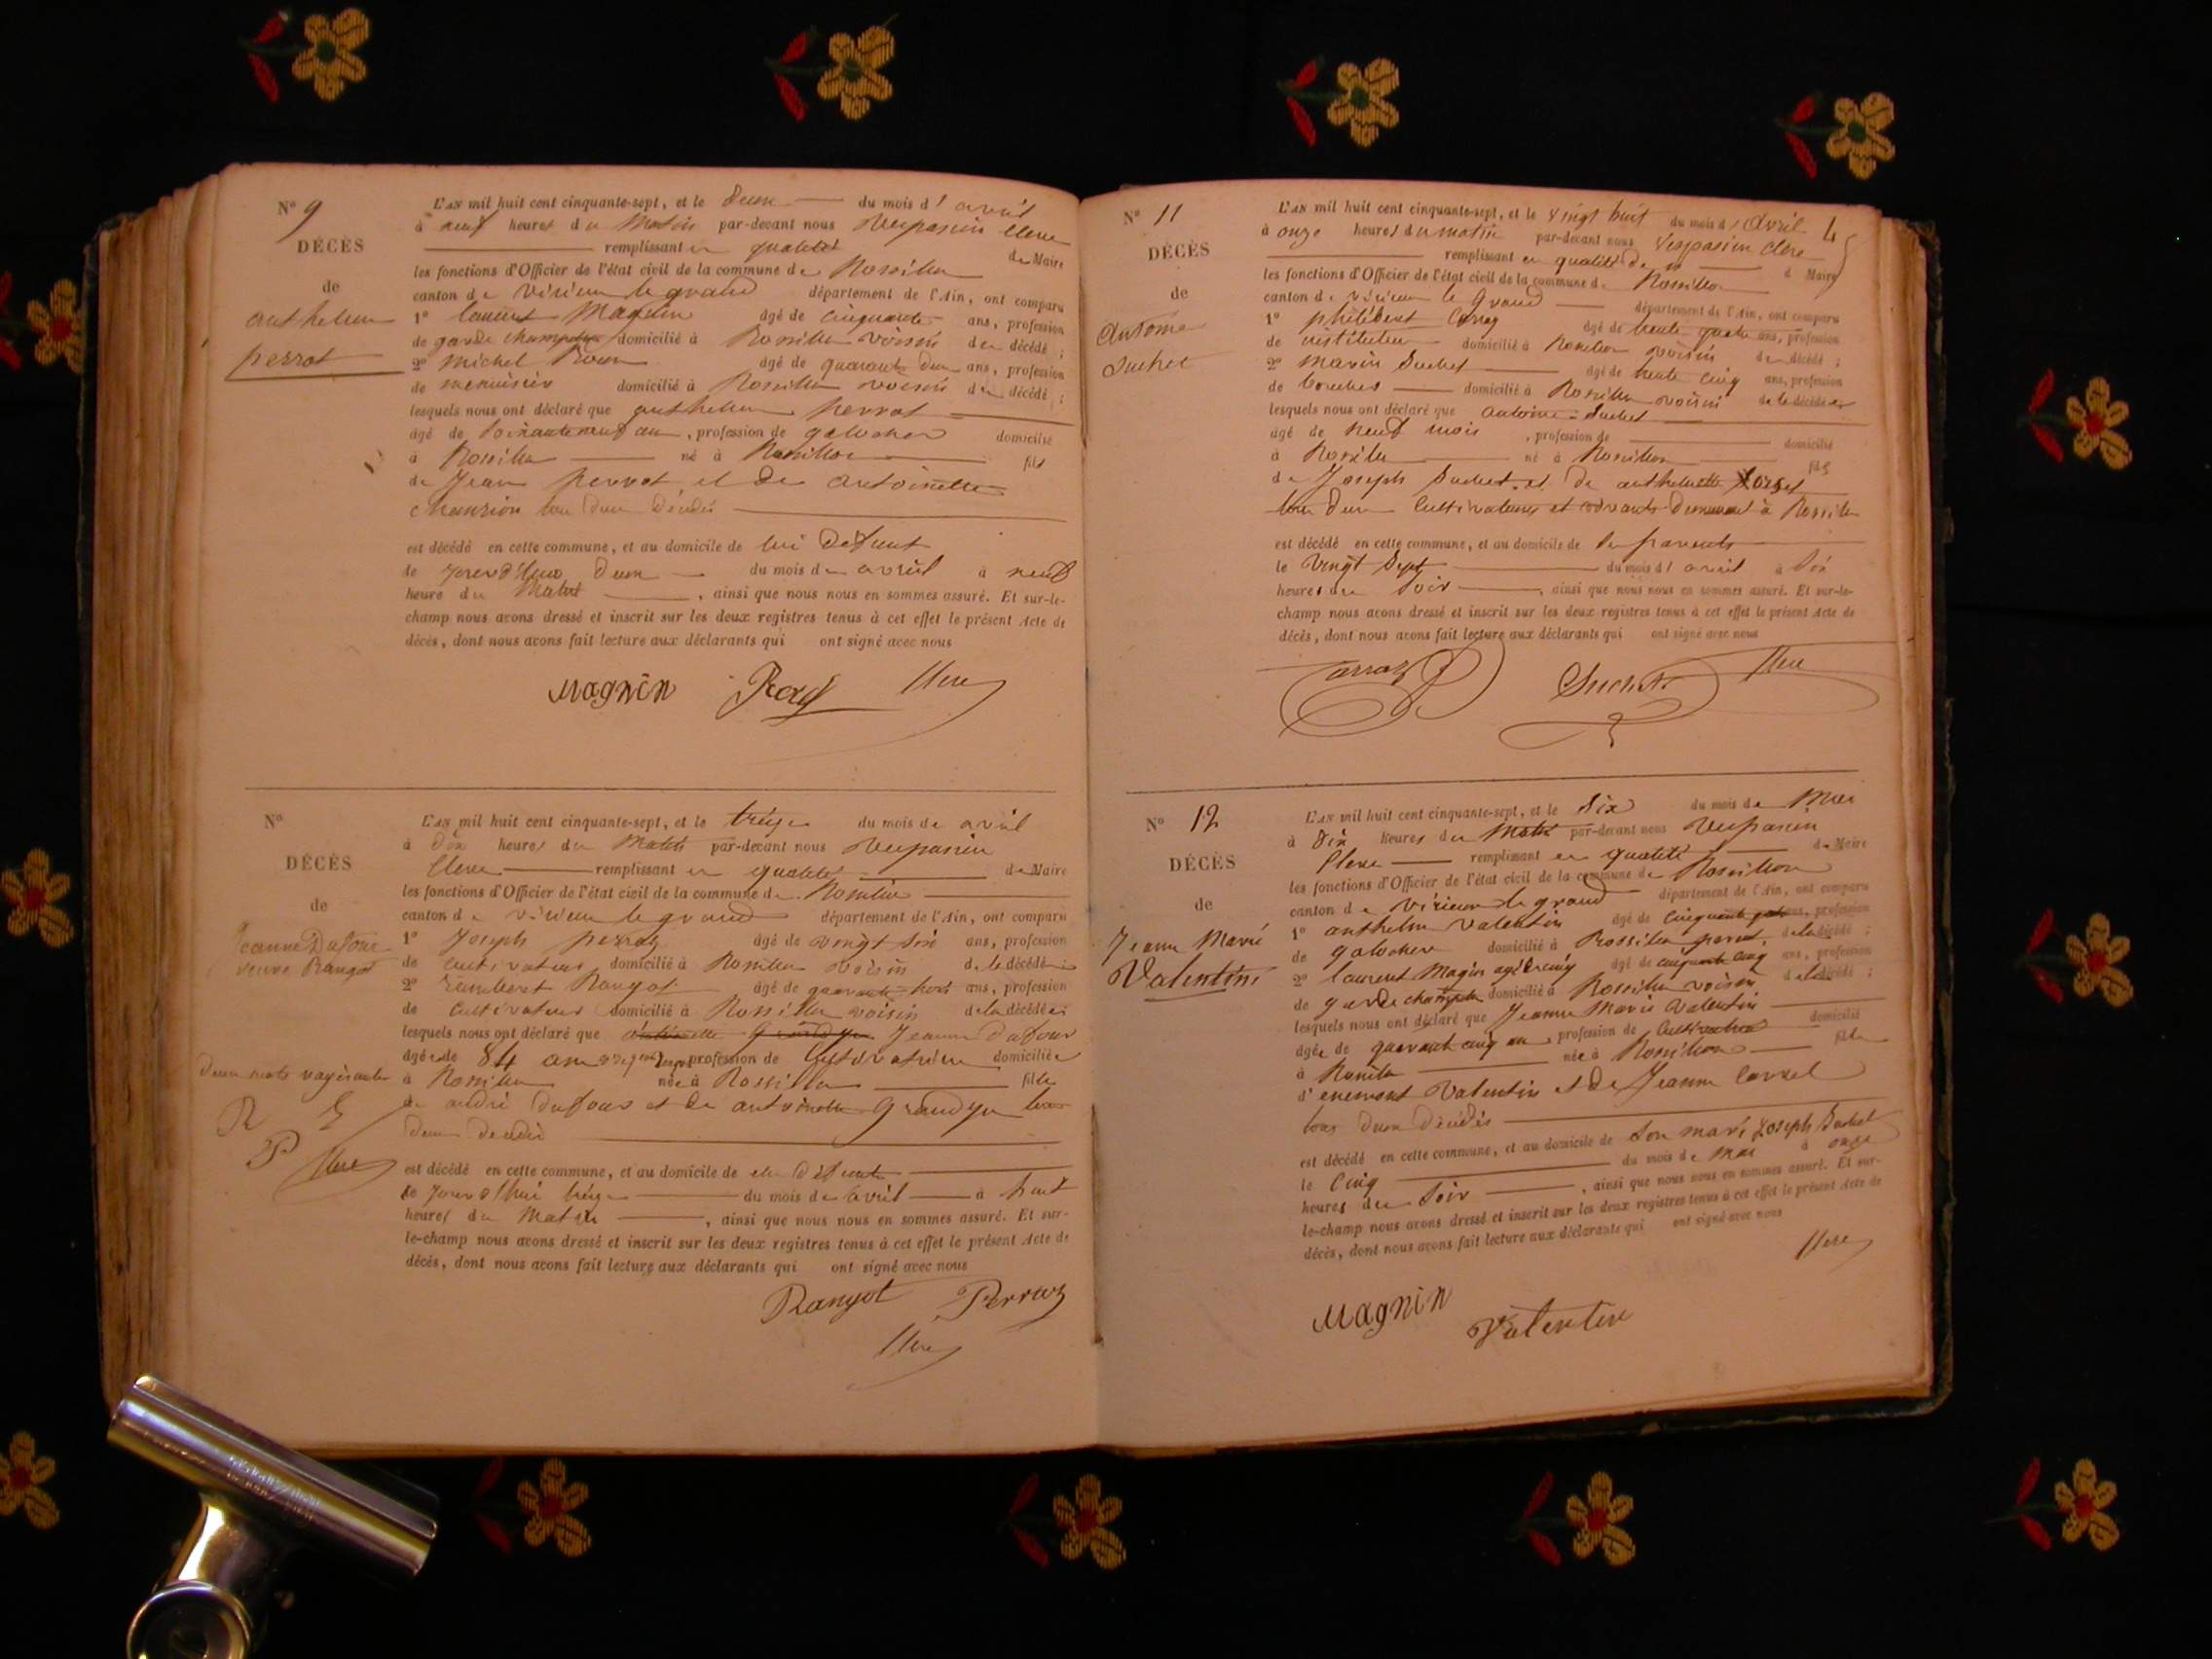 Nº 9
DÉCÈS
de
anthelme
perrot
L'AN mil huit cent cinquante-sept, et le deux du mois d'avril
à neuf heures du Matin par-devant nous Vespasien Clerc
remplissant en qualité de Maire
les fonctions d'Officier de l'état civil de la commune de Rossillon
canton de virieu le grand département de l'Ain, ont comparu
1º laurent Magnin âgé de cinquante ans, profession
de garde champetre domicilié à Rossillon voisin du décédé ;
2º Michel âgé de quarante deux ans, profession
de menuisier domicilié à Rossillon voisin du décédé ;
lesquels nous ont déclaré que anthelme perrot
âgé de soixante neuf ans, profession de galocher domicilié
à Rossillon né à Rossillon fils
de Jean perrot et de antoinette
tous deux décédés
est décédé en cette commune, et au domicile de lui défunt
le jourd'hui deux du mois de avril à neuf
heure du Matin, ainsi que nous nous en sommes assuré. Et sur-le-
champ nous avons dressé et inscrit sur les deux registres tenus à cet effet le présent Acte de
décès, dont nous avons fait lecture aux déclarants qui ont signé avec nous
Magnin Clerc
Nº
DÉCÈS
de
Jeanne Dufour
veuve Rangot
deux mots rayés nuls
Clerc
L'AN mil huit cent cinquante-sept, et le treize du mois de avril
à dix heures du Matin par-devant nous Vespasien
Clerc remplissant en qualité de Maire
les fonctions d'Officier de l'état civil de la commune de Rossillon
canton de virieu le grand département de l'Ain, ont comparu
1º Joseph perraz âgé de vingt six ans, profession
de cultivateur domicilié à Rossillon voisin de la décédée ;
2º rambert Rangot âgé de quarante huit ans, profession
de cultivateur domicilié à Rossillon voisin de la décédée ;
lesquels nous ont déclaré que Jeanne Dufour
âgée de 84 ans profession de Cultivatrice domiciliée
à Rossillon née à Rossillon fille
de andré Dufour et de antoinette Grandjn tous
deux décédés
est décédé en cette commune, et au domicile de elle défunte
le jourd'hui treize du mois de avril à huit
heures du Matin, ainsi que nous nous en sommes assuré. Et sur-
le-champ nous avons dressé et inscrit sur les deux registres tenus à cet effet le présent Acte de
décès, dont nous avons fait lecture aux déclarants qui ont signé avec nous
Rangot Perraz
Clerc
4
Nº 11
DÉCÈS
de
Antoine
Suchet
L'AN mil huit cent cinquante-sept, et le vingt huit du mois d'Avril
à onze heures du matin par-devant nous Vespasien Clerc
remplissant en qualité de Maire
les fonctions d'Officier de l'état civil de la commune de Rossillon
canton de virieu le Grand département de l'Ain, ont comparu
1º philibert âgé de trente quatre ans, profession
de instituteur domicilié à Rossillon voisin du décédé ;
2º marin Suchet âgé de trente cinq ans, profession
de boucher domicilié à Rossillon voisin de le décédé
lesquels nous ont déclaré que antoine Suchet
âgé de neuf mois, profession de domicilié
à Rossillon né à Rossillon fils
de Joseph Suchet et de anthelmette
tous deux Cultivateurs et vivants demeurant à Rossillon
est décédé en cette commune, et au domicile de ses parents
le vingt Sept du mois d'avril à six
heures du soir, ainsi que nous nous en sommes assuré. Et sur-le-
champ nous avons dressé et inscrit sur les deux registres tenus à cet effet le présent Acte de
décès, dont nous avons fait lecture aux déclarants qui ont signé avec nous
Suchet Clerc
Nº 12
DÉCÈS
de
Jeanne Marie
Valentin
L'AN mil huit cent cinquante-sept, et le six du mois de Mai
à dix heures du Matin par-devant nous Vespasien
Clerc remplissant en qualité de Maire
les fonctions d'Officier de l'état civil de la commune de Rossillon
canton de virieu le grand département de l'Ain, ont comparu
1º anthelme Valentin âgé de cinquante ans, profession
de galocher domicilié à Rossillon parent de la décédé ;
2º laurent Magnin âgé de cinquante cinq ans, profession
de garde champetre domicilié à Rossillon voisin de la décédé ;
lesquels nous ont déclaré que Jeanne Marie Valentin
âgée de quarante cinq ans, profession de cultivatrice domicilié
à Rossillon née à Rossillon fille
d'enemont Valentin et de Jeanne Carrel
tous deux décédés
est décédé en cette commune, et au domicile de son mari Joseph Suchet
le cinq du mois de Mai à onze
heures du soir, ainsi que nous nous en sommes assuré. Et sur-
le-champ nous avons dressé et inscrit sur les deux registres tenus à cet effet le présent Acte de
décès, dont nous avons fait lecture aux déclarants qui ont signé avec nous
Clerc
Magnin Valentin